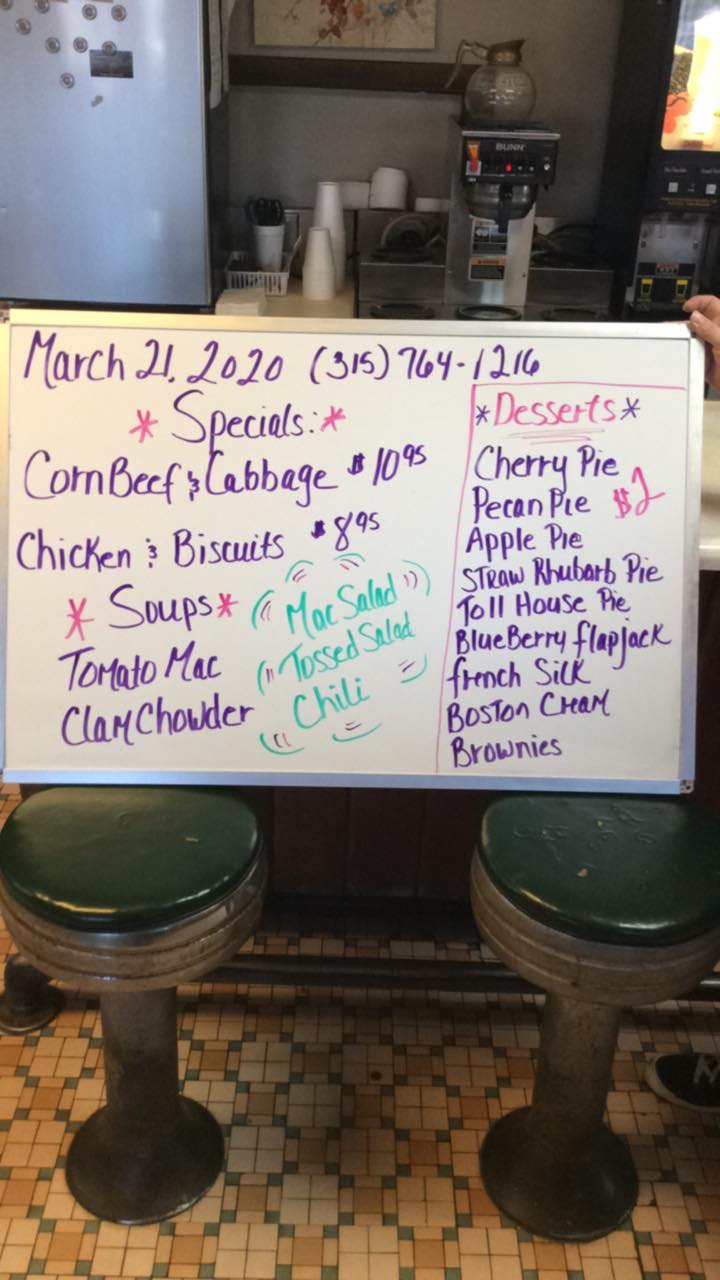 March 21, 2020 (315) 764-1216
* Specials: *
Corn Beef & Cabbage $10 95
Chicken & Biscuits $8 95
* Soups *
Tomato Mac
Clam Chowder
Mac Salad
Tossed Salad
Chili
* Desserts *
Cherry Pie
Pecan Pie $2
Apple Pie
Straw Rhubarb Pie
Toll House Pie
BlueBerry flapjack
french Silk
Boston Cream
Brownies
BUNN